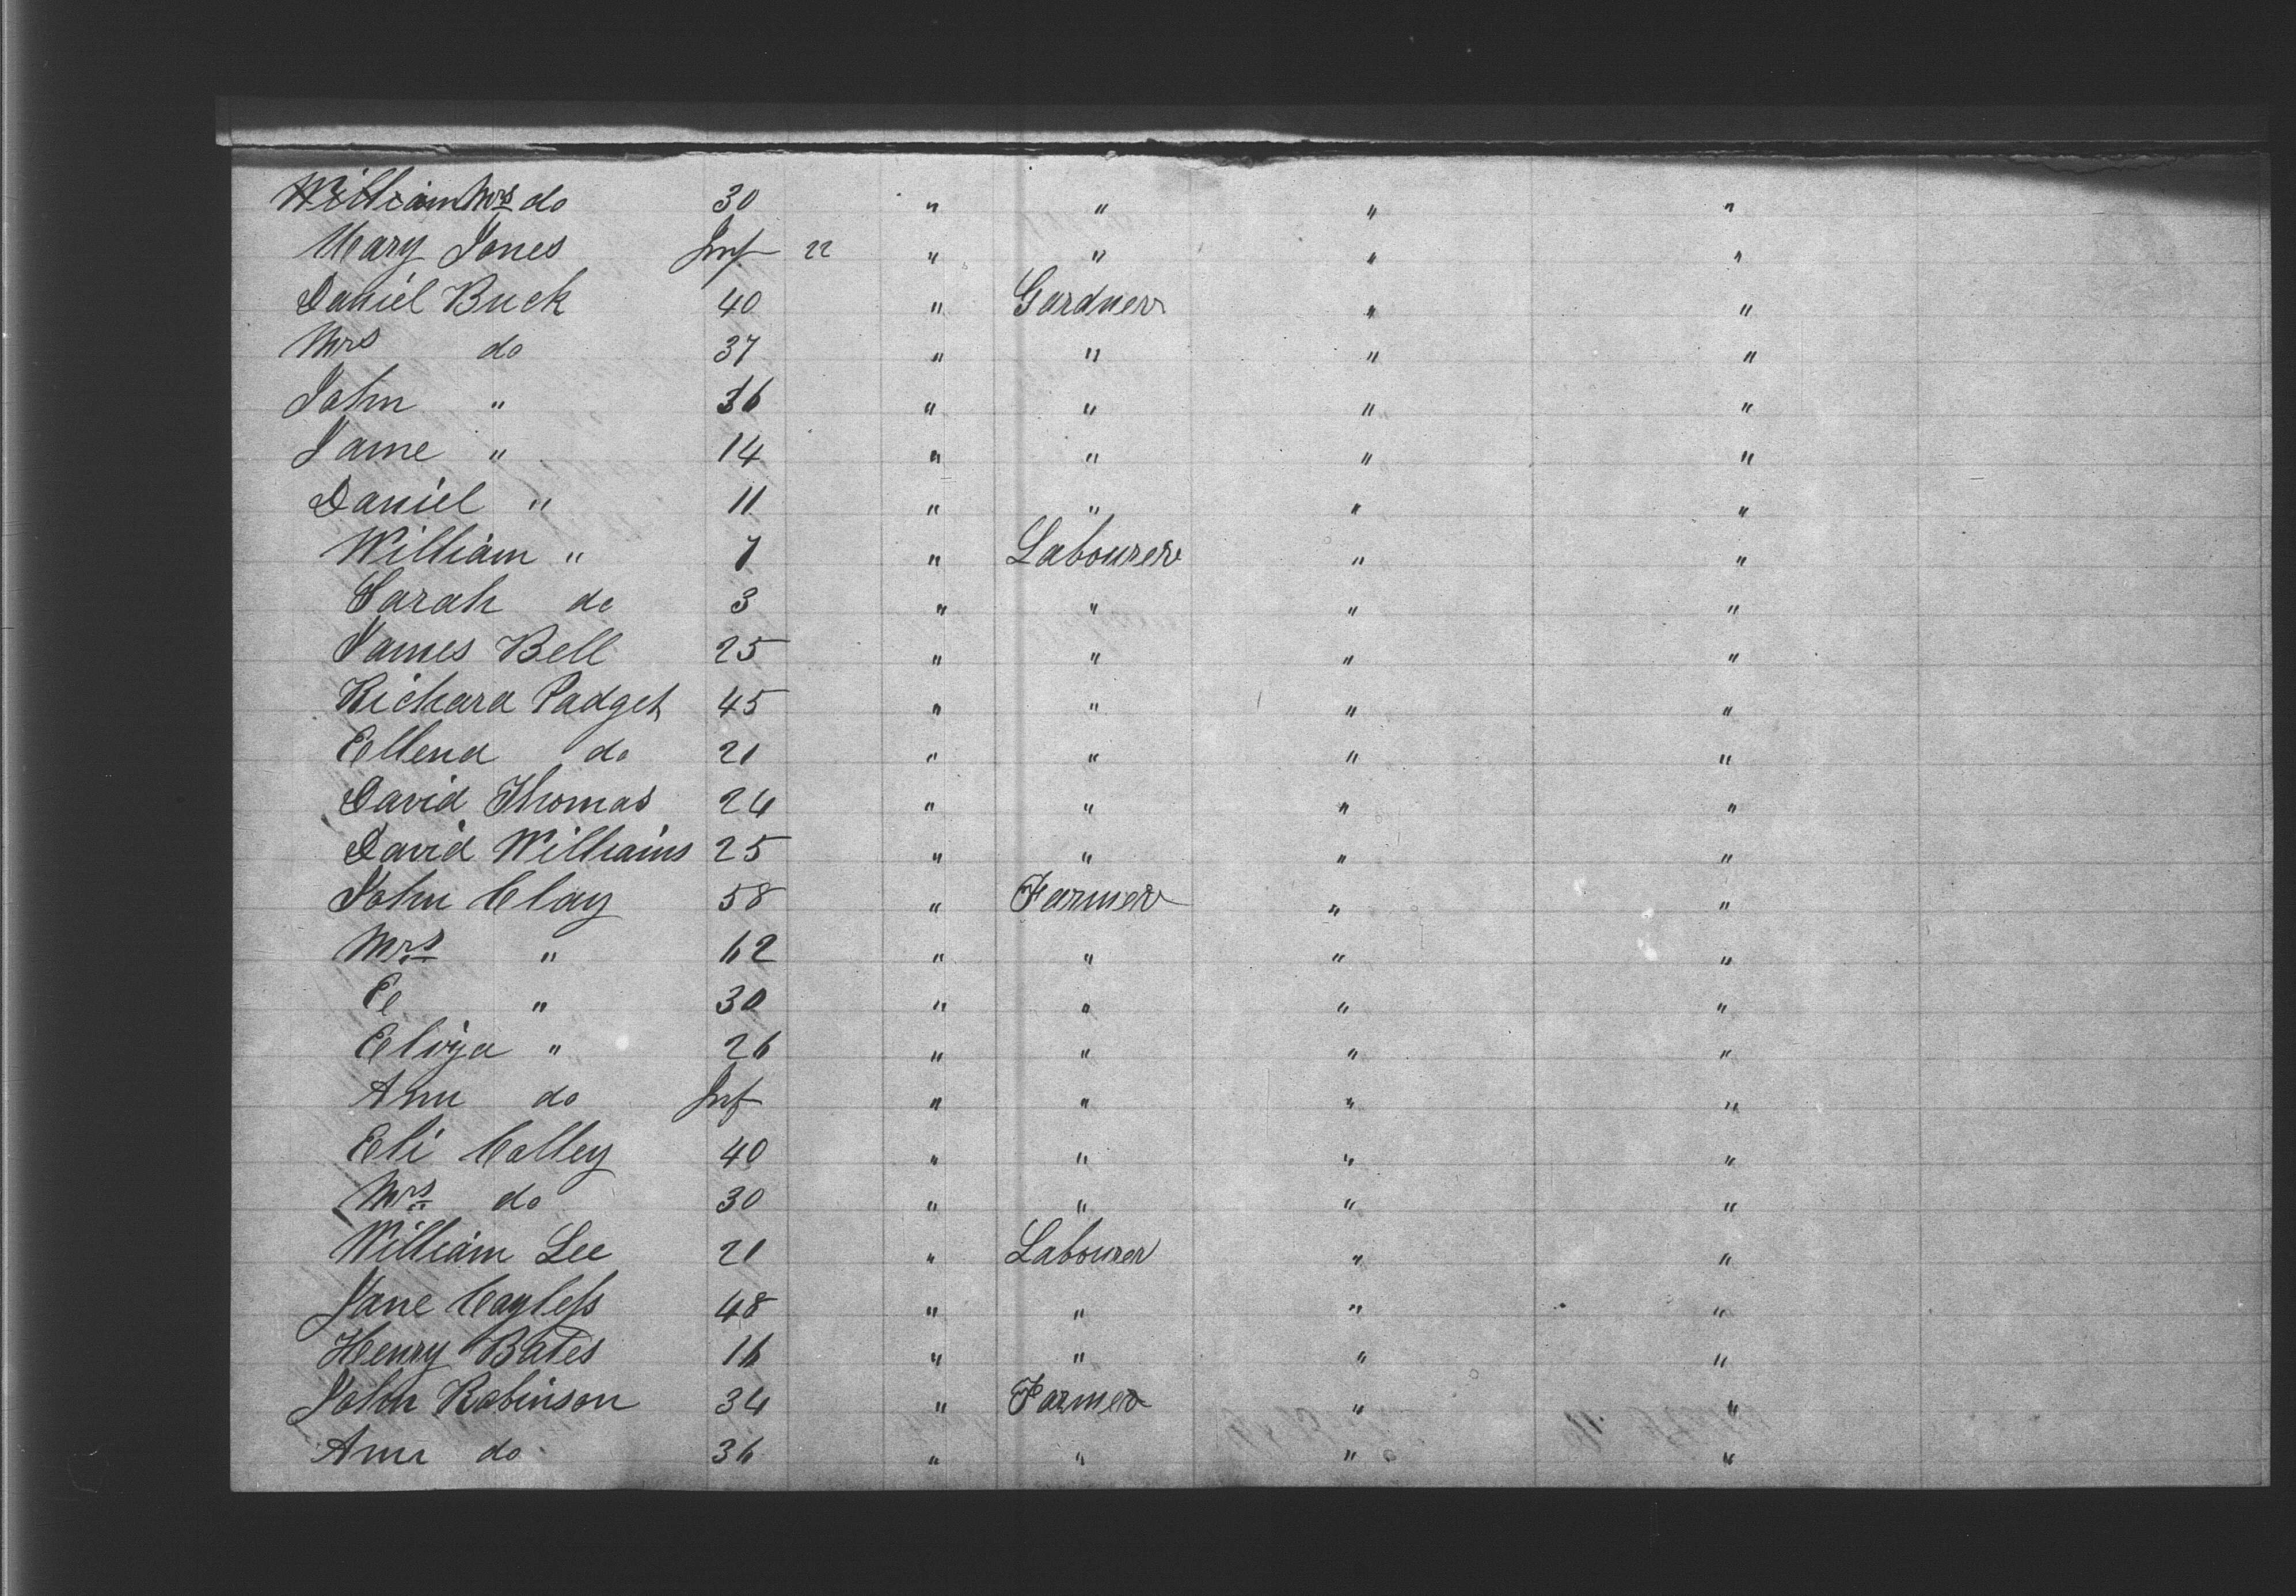 William Mrs do 30 " " " "
Mary Jones Inf 22 " " " "
Daniel Buck 40 " Gardner " "
Mrs do 37 " " " "
John " 36 " " " "
Jame " 14 " " " "
Daniel " 11 " " " "
William " 7 " Labourer " "
Sarah do 3 " " " "
James Bell 25 " " " "
Richard Padget 45 " " " "
Ellena do 21 " " " "
David Thomas 24 " " " "
David Williams 25 " " " "
John Clay 58 " Farmer " "
Mrs " 62 " " " "
E " 30 " " " "
Eliza " 26 " " " "
Ann do Inf " " " "
Eli Colley 40 " " " "
Mrs do 30 " " " "
William Lee 21 " Labourer " "
Jane Cayless 48 " " " "
Henry Bates 16 " " " "
John Robinson 34 " Farmer " "
Ann do 36 " " " "